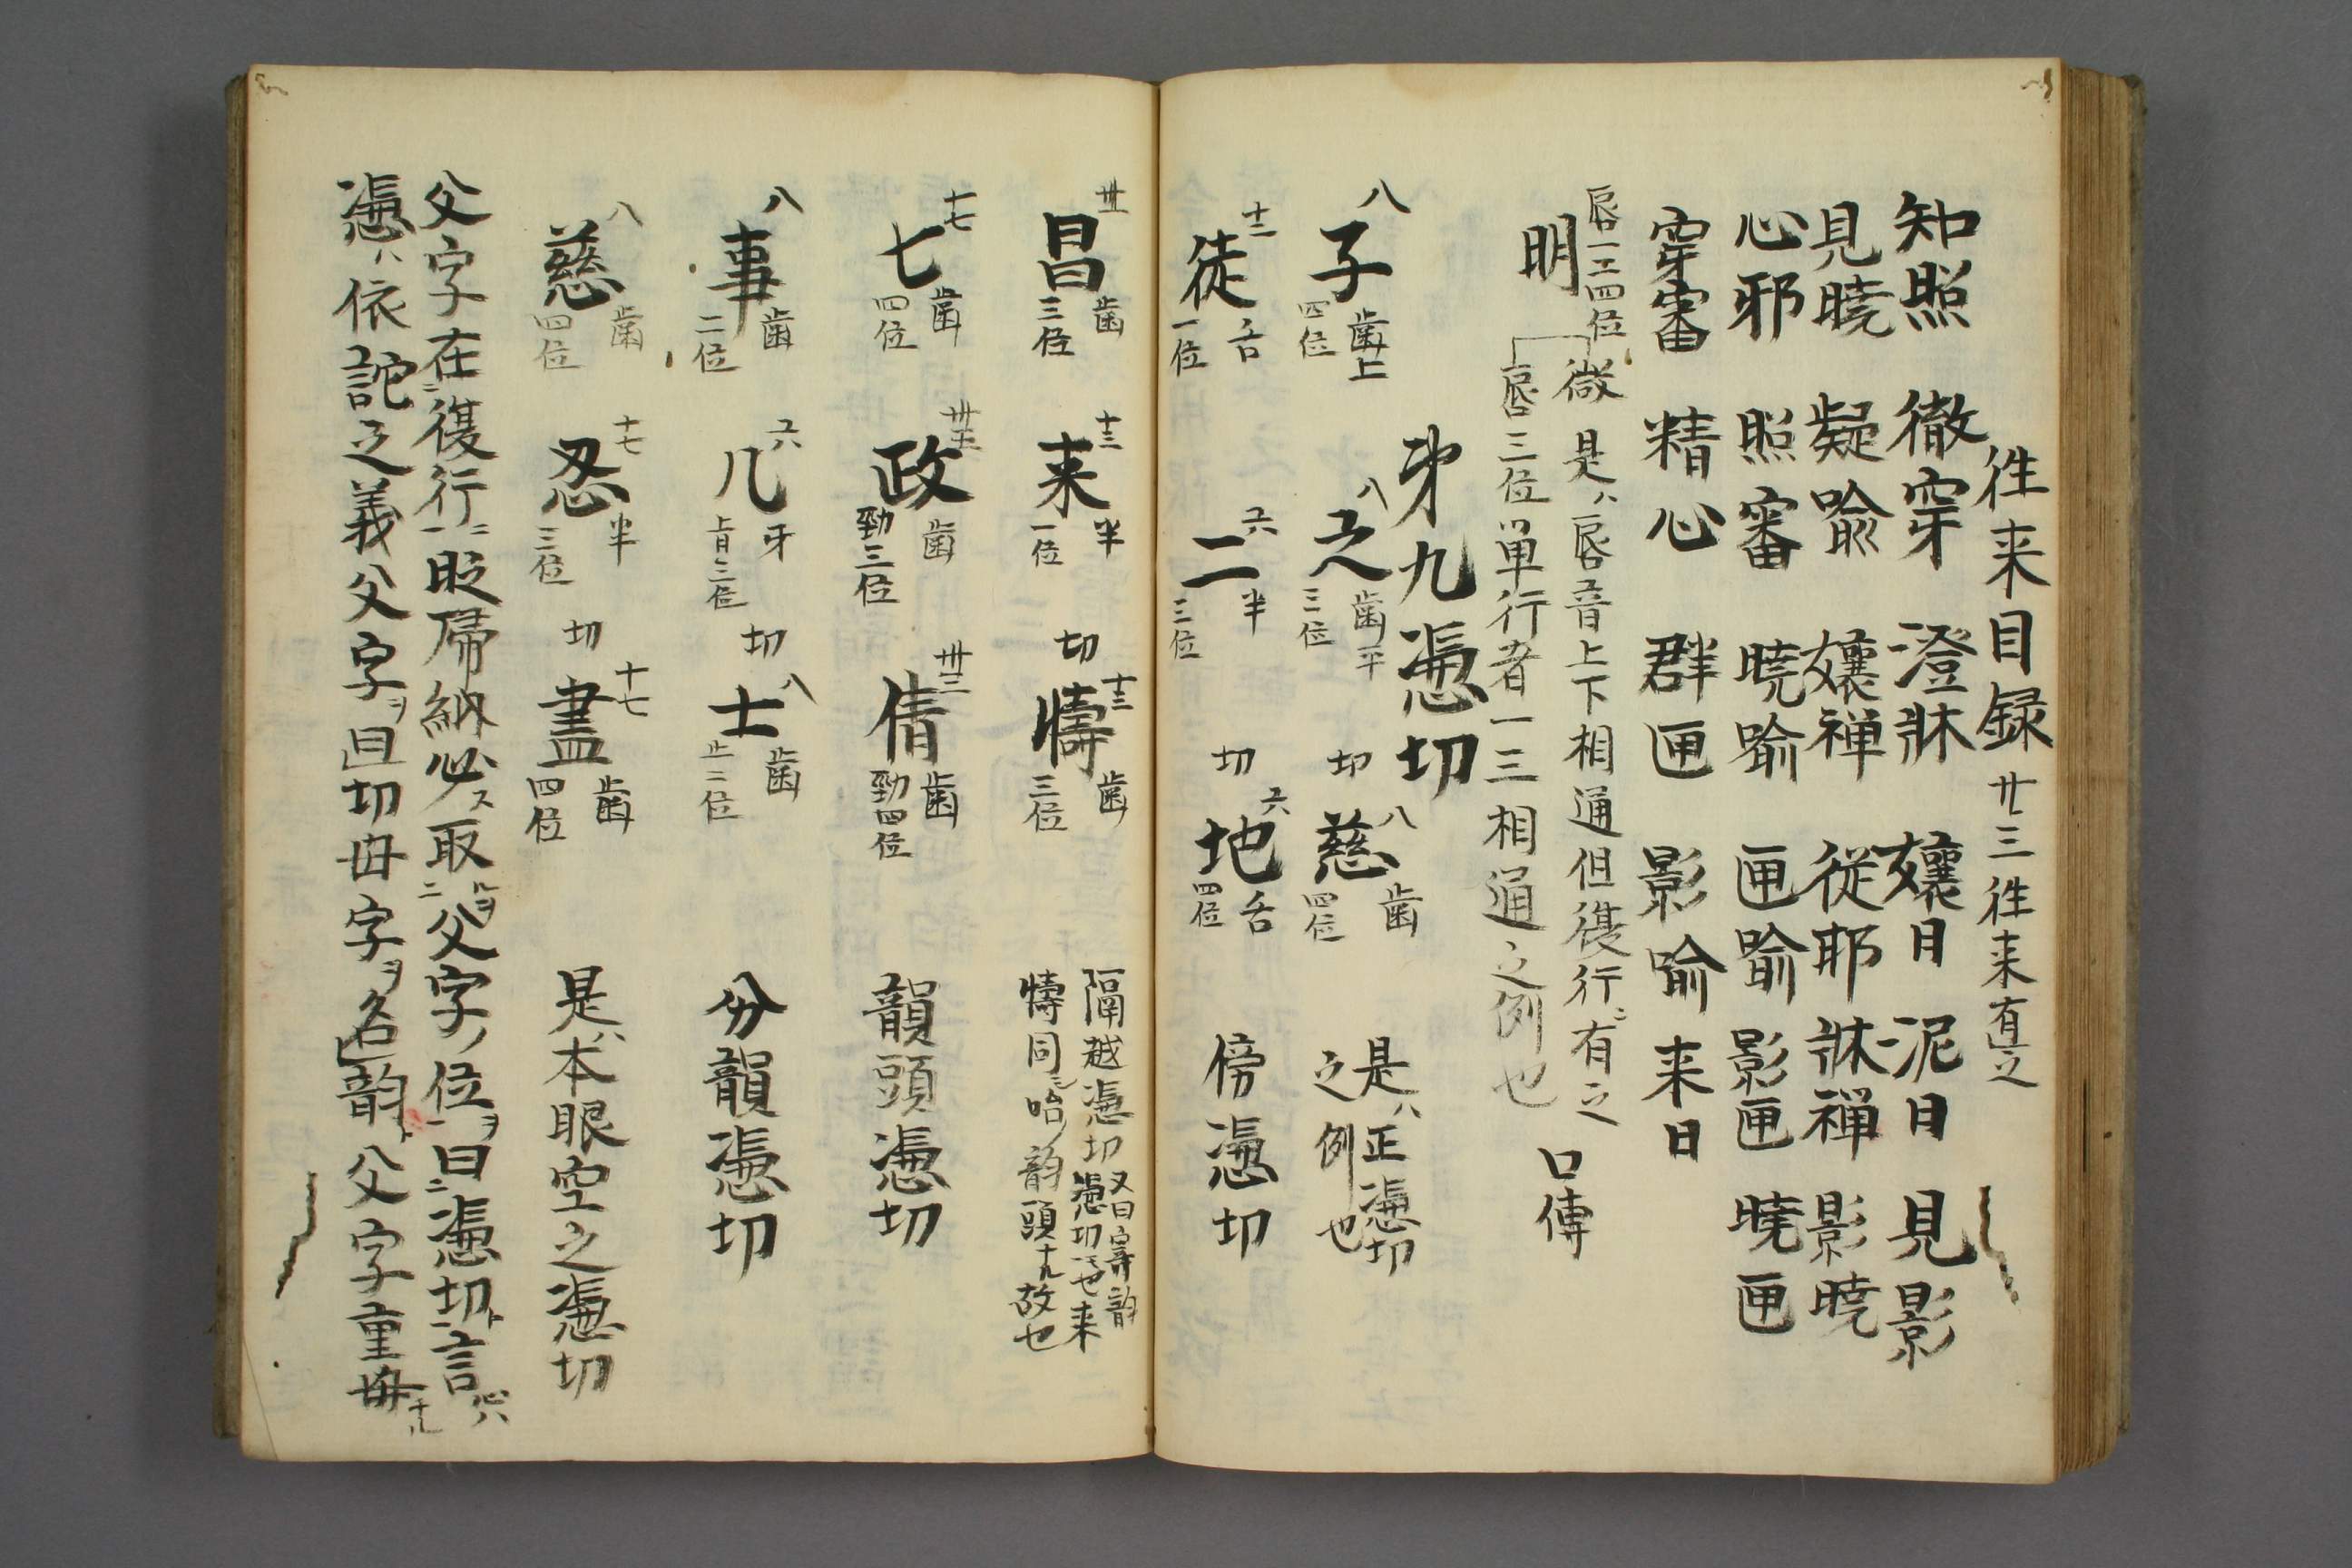 往来目録 廿三往来有之
知照 徹穿 澄牀 孃日 泥日 見影
見曉 疑喩 孃禅 従耶 牀禅 影曉
心邪 照審 曉喩 匣喩 影匣 曉匣
穿審 精心 群匣 影喩 来日
明 唇一二四位 微 唇三位
是ハ唇音上下相通但復行ニ有之
単行者一三相通之例也 口傳
第九憑切
八 子 歯上 四位 八 之 歯平 三位 切 八 慈 歯 四位 是ハ正憑切之例也
十二 徒 舌 一位 六 二 半 三位 切 六 地 舌 四位 傍憑切
昌 歯 三位 十三 来 半 一位 切 十三 幬 歯 三位 隔越憑切 又曰寄韵憑切也来幬同咍韵頭ナル故也
十七 七 歯 四位 政 歯 勁三位 卅三 倩 歯 勁四位 韻頭憑切
八 事 歯 二位 六 几 牙 旨三位 切 八 士 歯 止二位 分韻憑切
八 慈 歯 四位 十七 忍 半 三位 切 十七 盡 歯 四位 是ハ本眼空之憑切
父字在復行ニ眨帰納必ス取ルヲ父字ノ位ヲ曰憑切ト言心ハ
憑ハ依託之義父字ヲ曰切母字ヲ名韵ト父字重毎ナル